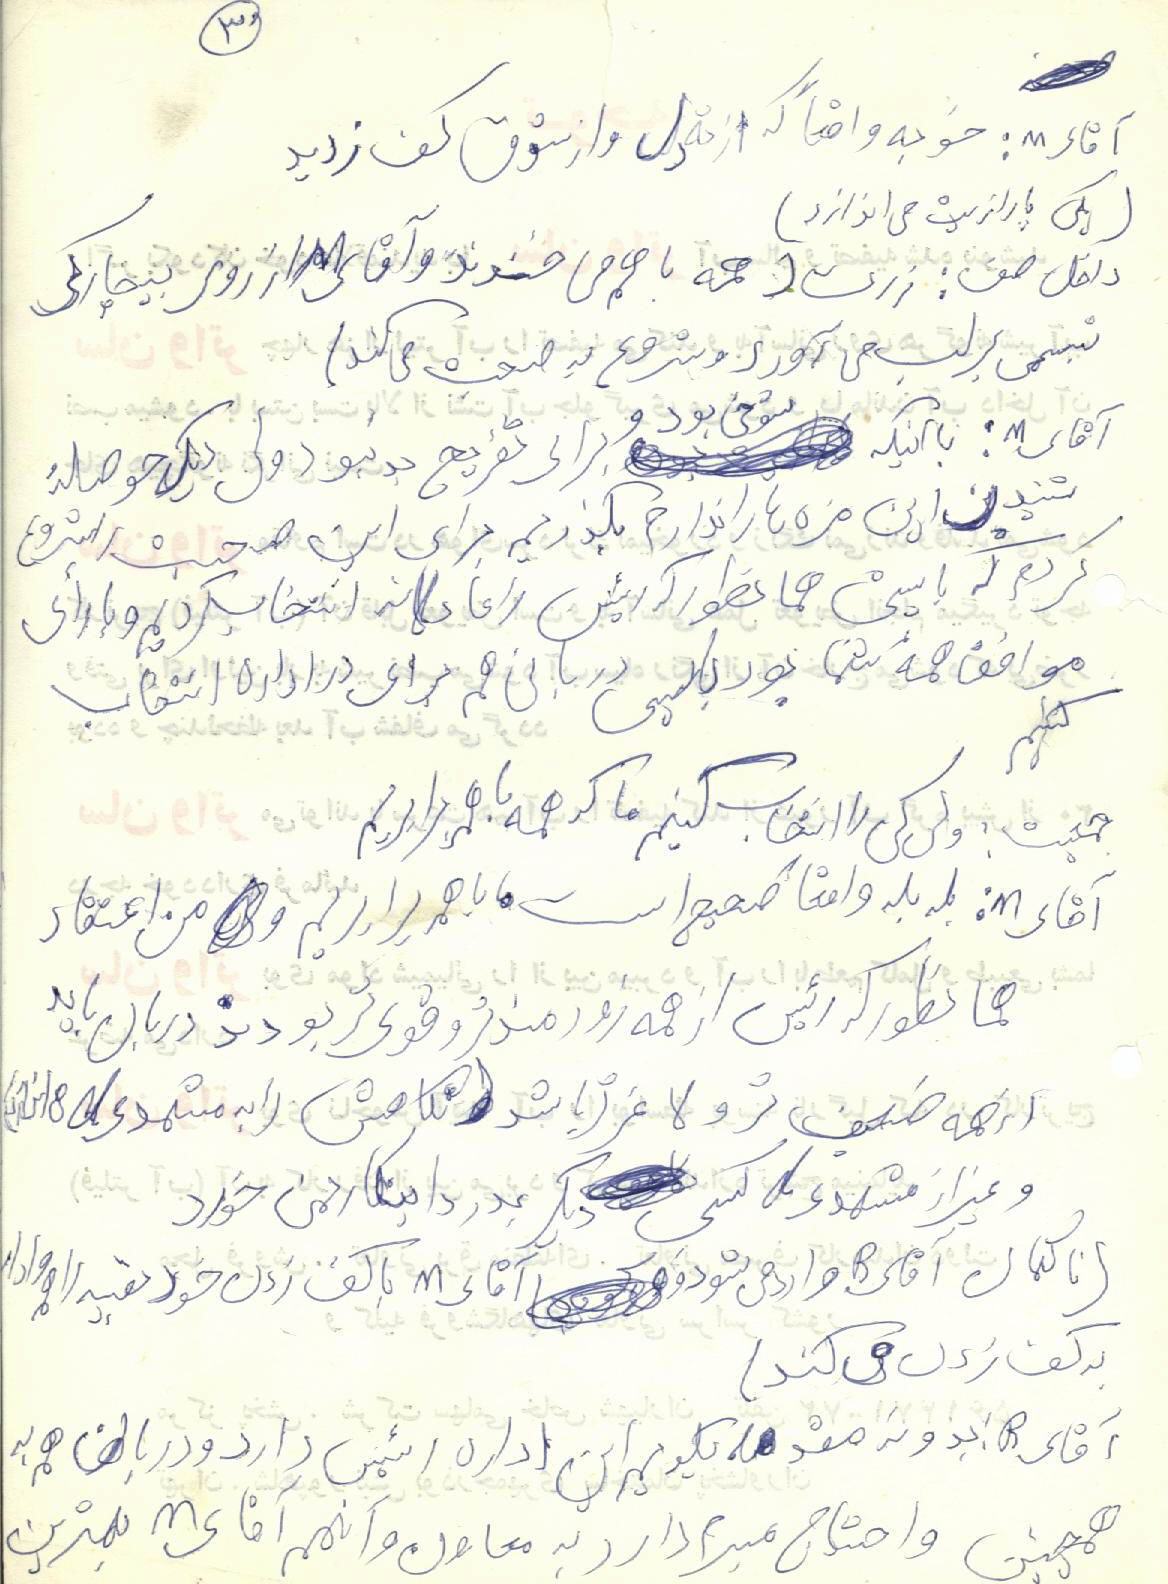 ۳
آقای M: خوبه واقعاً که از ته دل و از شوق کف زدید
(یکی پارازیت می‌اندازد)
داخل صف: زرت (همه با هم می خندند و آقای M از روی بیچارگی
تبسمی بر لب می آورد و شروع به صحبت می کند)
آقای M: با آنیکه شوخی بود و برای تفریح بد نبود ولی دیگر حوصله
شنیدن این مزه ها را ندارم بگذریم برای این صحبت را شروع
کردم که بایستی همانطور که رئیس را عادلانه انتخاب کردیم و با رأی
موافق همهٔ شما بود بایستی دربانی هم برای در اداره انتخاب
کنیم
جمعیت: ولی کی را انتخاب کنیم ما که همه با هم برابریم
آقای M: بله بله واقعاً صحیح است ما با هم برابریم ولی من اعتقاد
همانطور که رئیس از همه زورمندتر و قوی تر بودند دربان باید
از همه ضعیف تر و لاغرتر باشد (نگاهش را به مشمدی
و غیر از مشمدی کسی دیگر بدرد اینکار نمی خورد
(ناگهان آقای R وارد می شود و آقای M با کف زدن خود بقیه را هم وادار
به کف زدن می کند)
آقای R: بدون مقدمه بگویم این اداره رئیس دارد و دربان هم به
همچنین و احتیاج مبرم دارد به معاون و آنهم آقای M بهترین